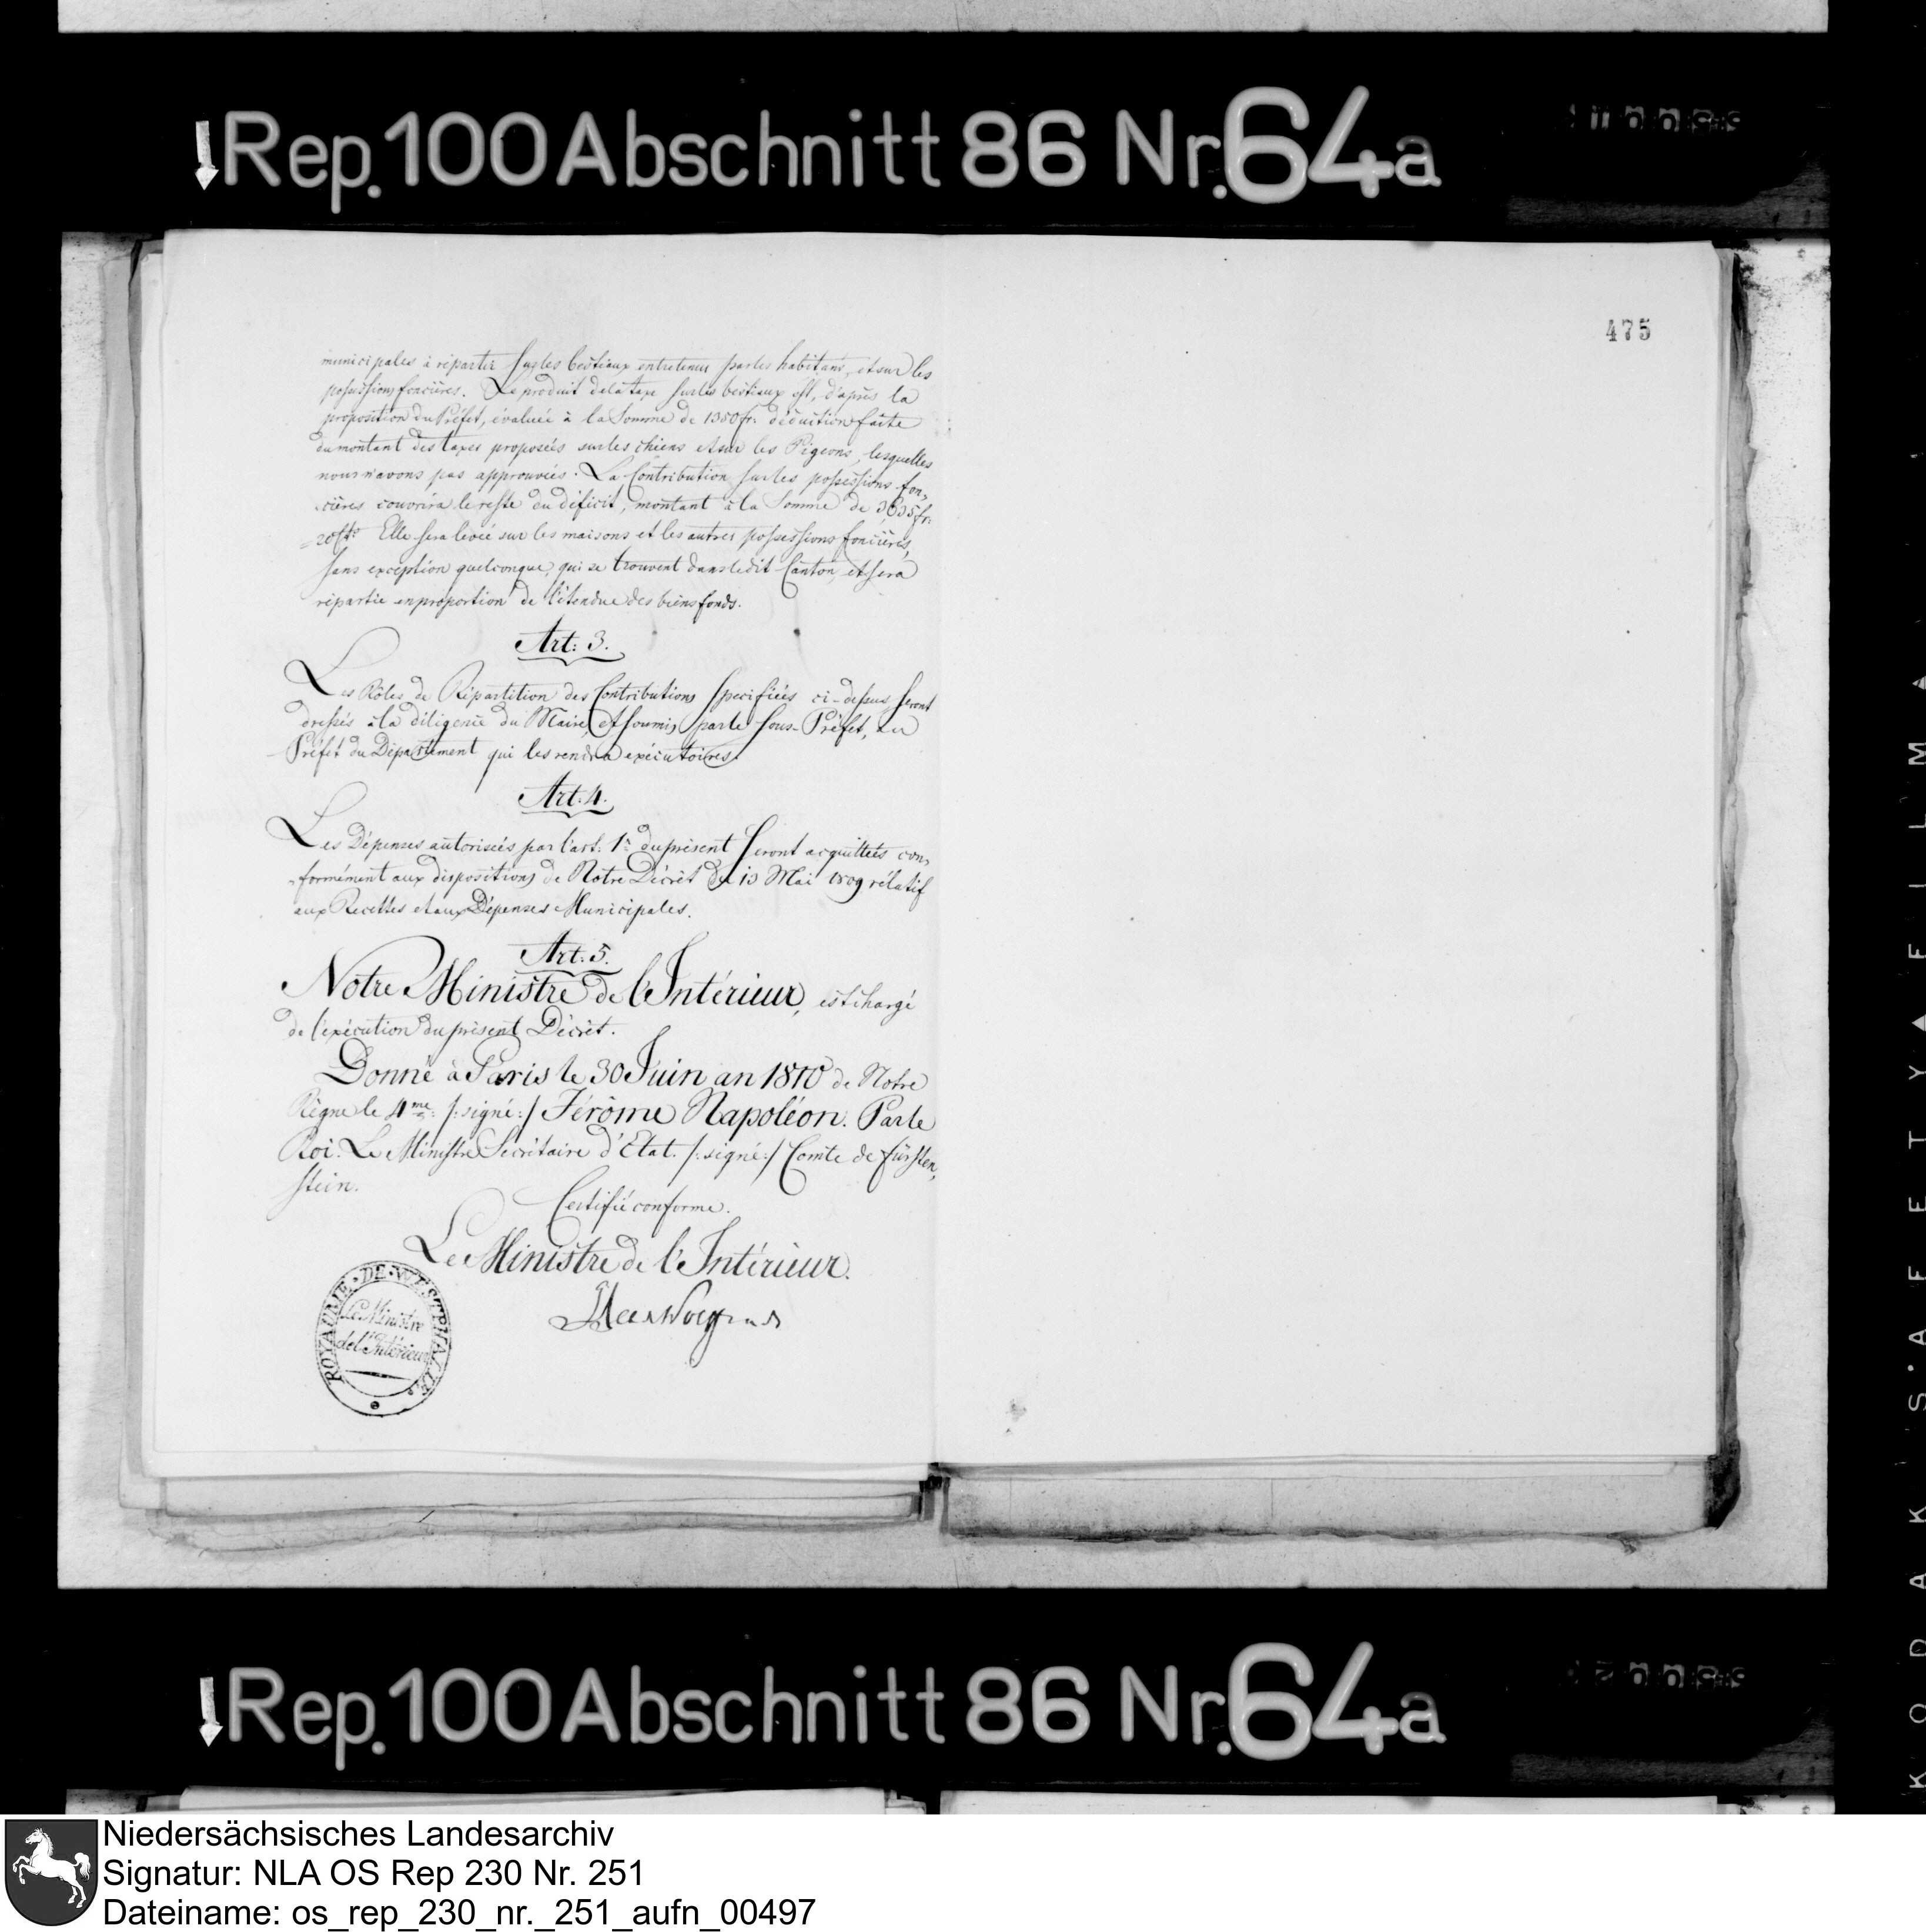 Rep. 100 Abschnitt 86 Nr. 64a
475
municipales à répartir sur les bestiaux entretenus par les habitans, et sur les
possessions foncières. Le produit de la taxe sur les bestiaux est, d'après la
proposition du Préfet, évaluée à la Somme de 1350 fr. déduction faite
du montant des taxes proposées sur les chiens et sur les Pigeons, lesquelles
nous n'avons pas approuvées. La Contribution sur les possessions fon,
cières couvrira le reste du déficit, montant à la Somme de fr.
Elle sera levée sur les maisons et les autres possessions foncières,
sans exception quelconque, qui se trouvent dans ledit Canton, et sera
répartie en proportion de l'étendue des biens fonds.
Art: 3.
Les Rôles de Répartition des Contributions Specifiées ci-dessus seront
dressés à la diligence du Maire, et soumis par le Sous-Préfet, au
Préfet du Département qui les rendra exécutoires.
Art. 4.
Les Dépenses autorisées par l'art. 1er du présent seront acquittées con,
formément aux dispositions de Notre Décret du Mai 1809 rélatif
aux Recettes et aux Dépenses Municipales.
Art. 5.
Notre Ministre de l'Intérieur, est chargé
de l'exécution du présent Décret.
Donné à Paris le 30 Juin an 1810 de Notre
Règne le 4me /: signé :/ Jérôme Napoléon. Par le
Roi. Le Ministre Secrétaire d'Etat. /: signé :/ Comte de Fürsten,
stein.
Certifié conforme.
Le Ministre de l'Intérieur.
ROYAUME · DE · WESTPHALIE
Le Ministre
de l'Intérieur
Rep. 100 Abschnitt 86 Nr. 64a
KODAK SAFETY FILM
Niedersächsisches Landesarchiv
Signatur: NLA OS Rep 230 Nr. 251
Dateiname: os_rep_230_nr._251_aufn_00497